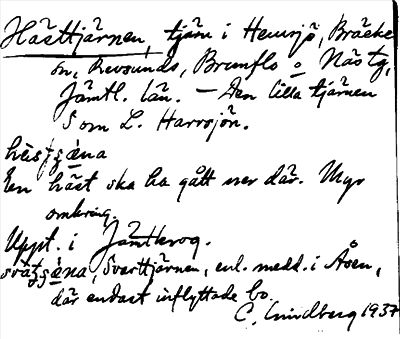 Hästtjärnen, tjärn i Hemsjö, Bräcke
sn, Revsunds, Brunflo o Näs tg,
Jämtl. län. – Den lilla tjärnen
S om L. Harrsjön.
En häst ska ha gått ner där. Myr
omkring.
Uppt. i Jämtkrog.
Svarttjärnen, enl. medd. i Åsen,
där endast inflyttade bo.
C. Lindberg 1937